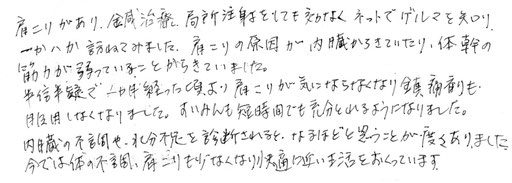 肩こりがあり、鍼灸治療、局所注射をしても効かなく ネットでゲルマを知り、
一か八か訪ねてみました。肩こりの原因が内臓からきていたり、体幹の
筋力が弱っていることからきていました。
半信半疑で一カ月経った頃より肩こりが気にならなくなり鎮痛剤も
服用しなくなりました。すいみんも短時間でも充分とれるようになりました。
内臓の不調や、水分不足を診断されると、なるほどと思うことが度々ありました。
今では体の不調、肩こりもなくなり快適に近い生活をおくっています。